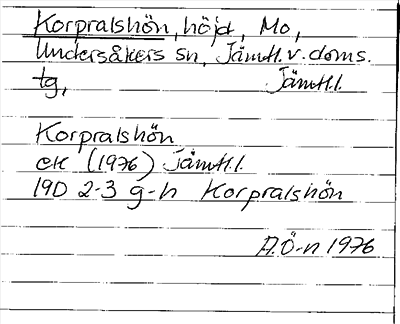 Korpralshön, höjd, Mo,
Undersåkers sn, Jämtl. v. doms.
tg, Jämtl.l.
Korpralshön
ek (1976) Jämtl.l.
19D 2-3 g-h Korpralshön
A.Ö-n 1976